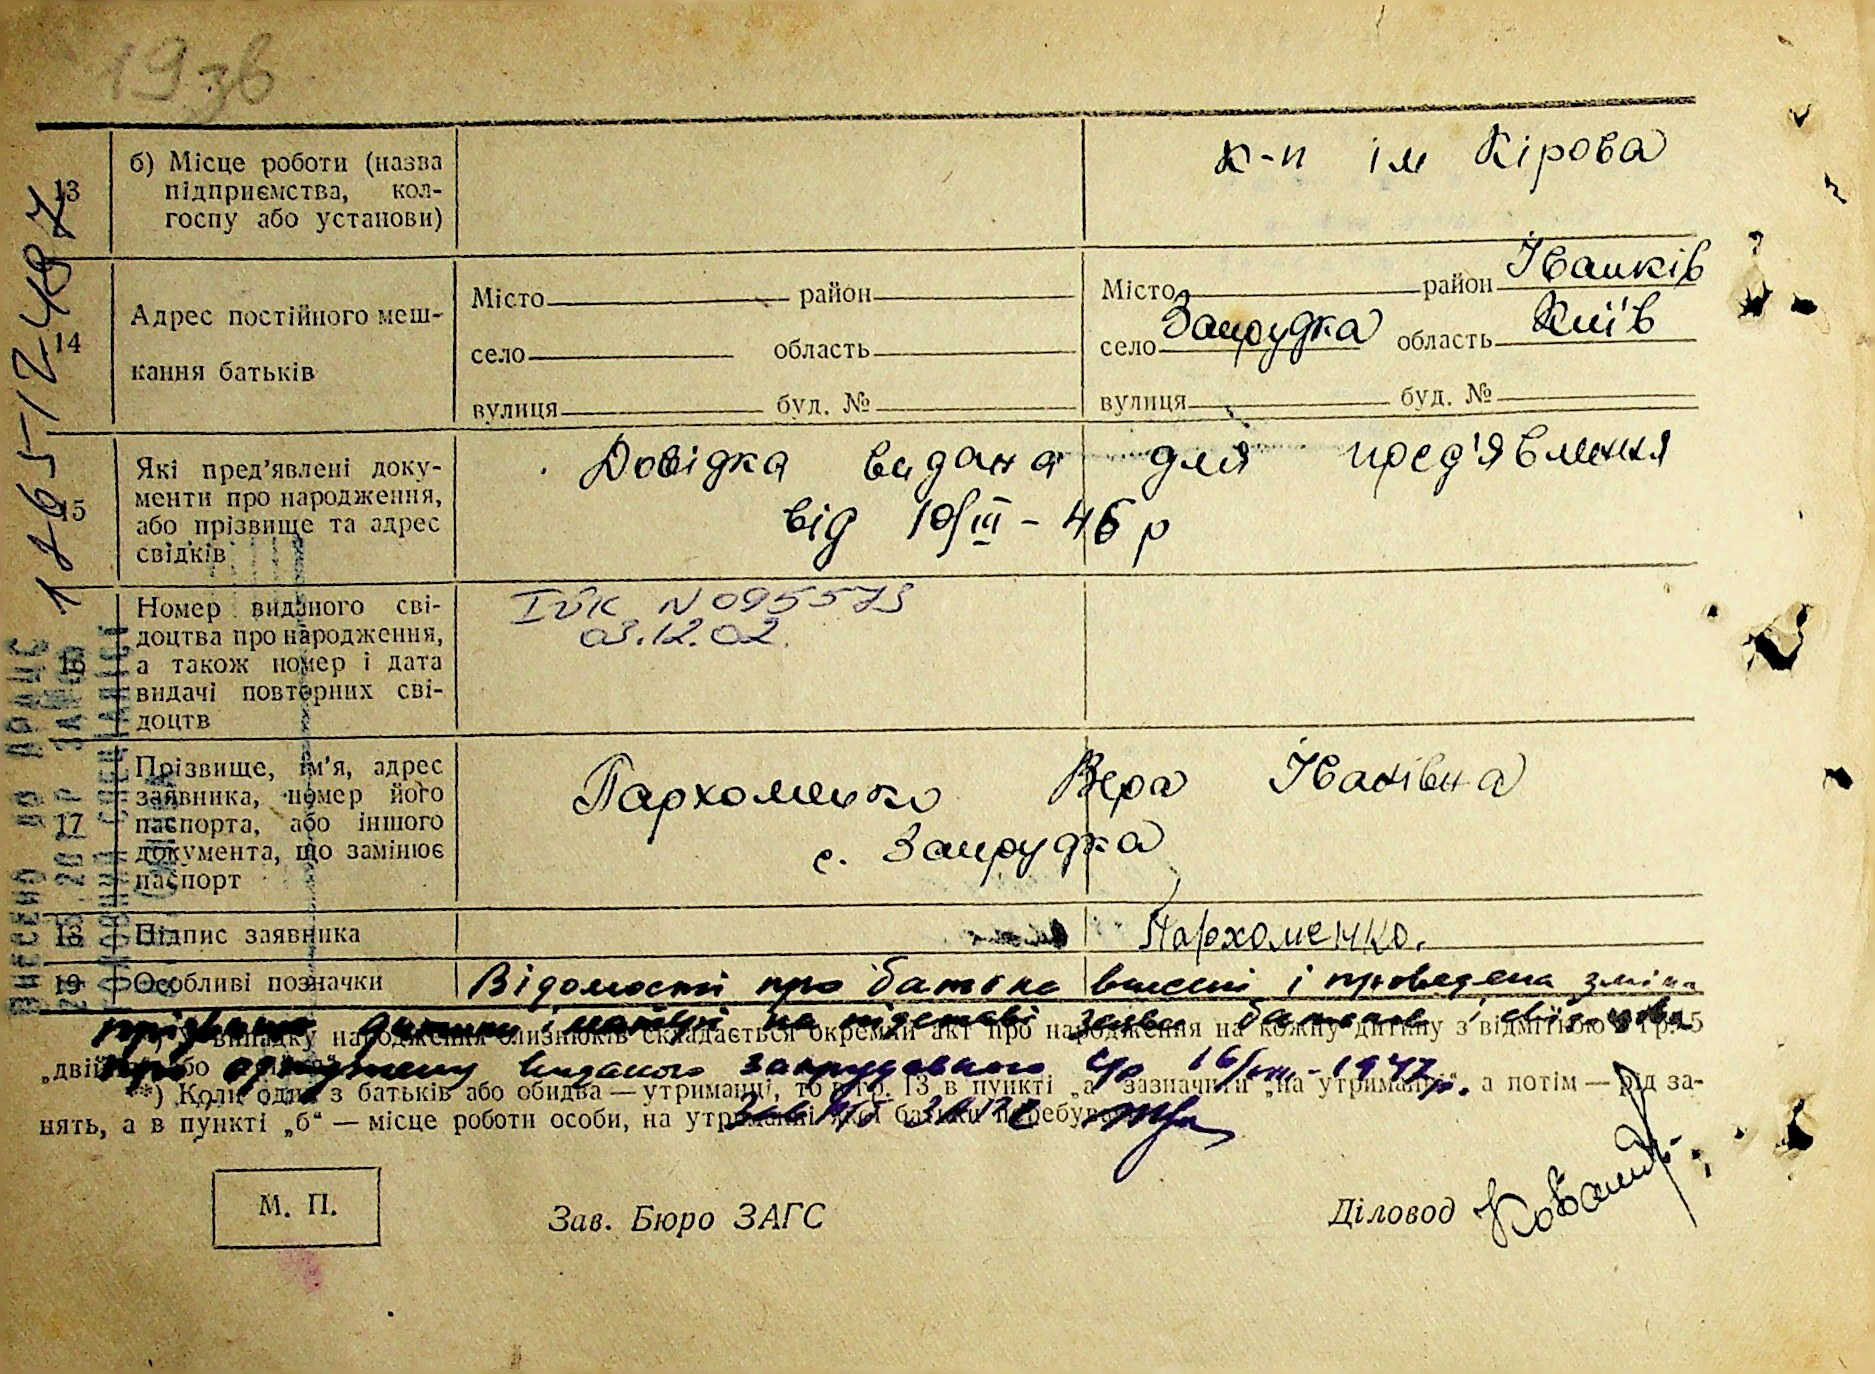 19 зв
13 б) Місце роботи (назва
підприємства, кол-
госпу або установи)
к-п ім Кірова
14 Адрес постійного меш-
кання батьків
Місто район
село область
вулиця буд. №
Місто район Іванків
село Запрудка область Київ
вулиця буд. №
15 Які пред'явлені доку-
менти про народження,
або прізвище та адрес
свідків
Довідка видана для пред'явлення
від 10/III - 46 р
16 Номер виданого сві-
доцтва про народження,
а також номер і дата
видачі повторних сві-
доцтв
N 095573
03.12.02.
17 Прізвище, ім'я, адрес
заявника, номер його
паспорта, або іншого
документа, що замінює
паспорт
Пархоменко Вера Іванівна
с. Запрудка
18 Підпис заявника
Пархоменко.
19 Особливі позначки
Відомости про батька внесені і проведена зміна
прізвища дитини і матері на підставі заяви батьків і свідоцтва
випадку народження близнюків складається окремий акт про народження на кожну дитину з відміткою в гр. 5
про одруження виданого
16/ - 1947р.
**) Коли один з батьків або обидва — утриманці, то в гр. 13 в пункті „а" зазначити „на утриманні", а потім — рід за-
нять, а в пункті „б" — місце роботи особи, на утриманні якої батьки перебувають
М. П.
Зав. Бюро ЗАГС
Діловод